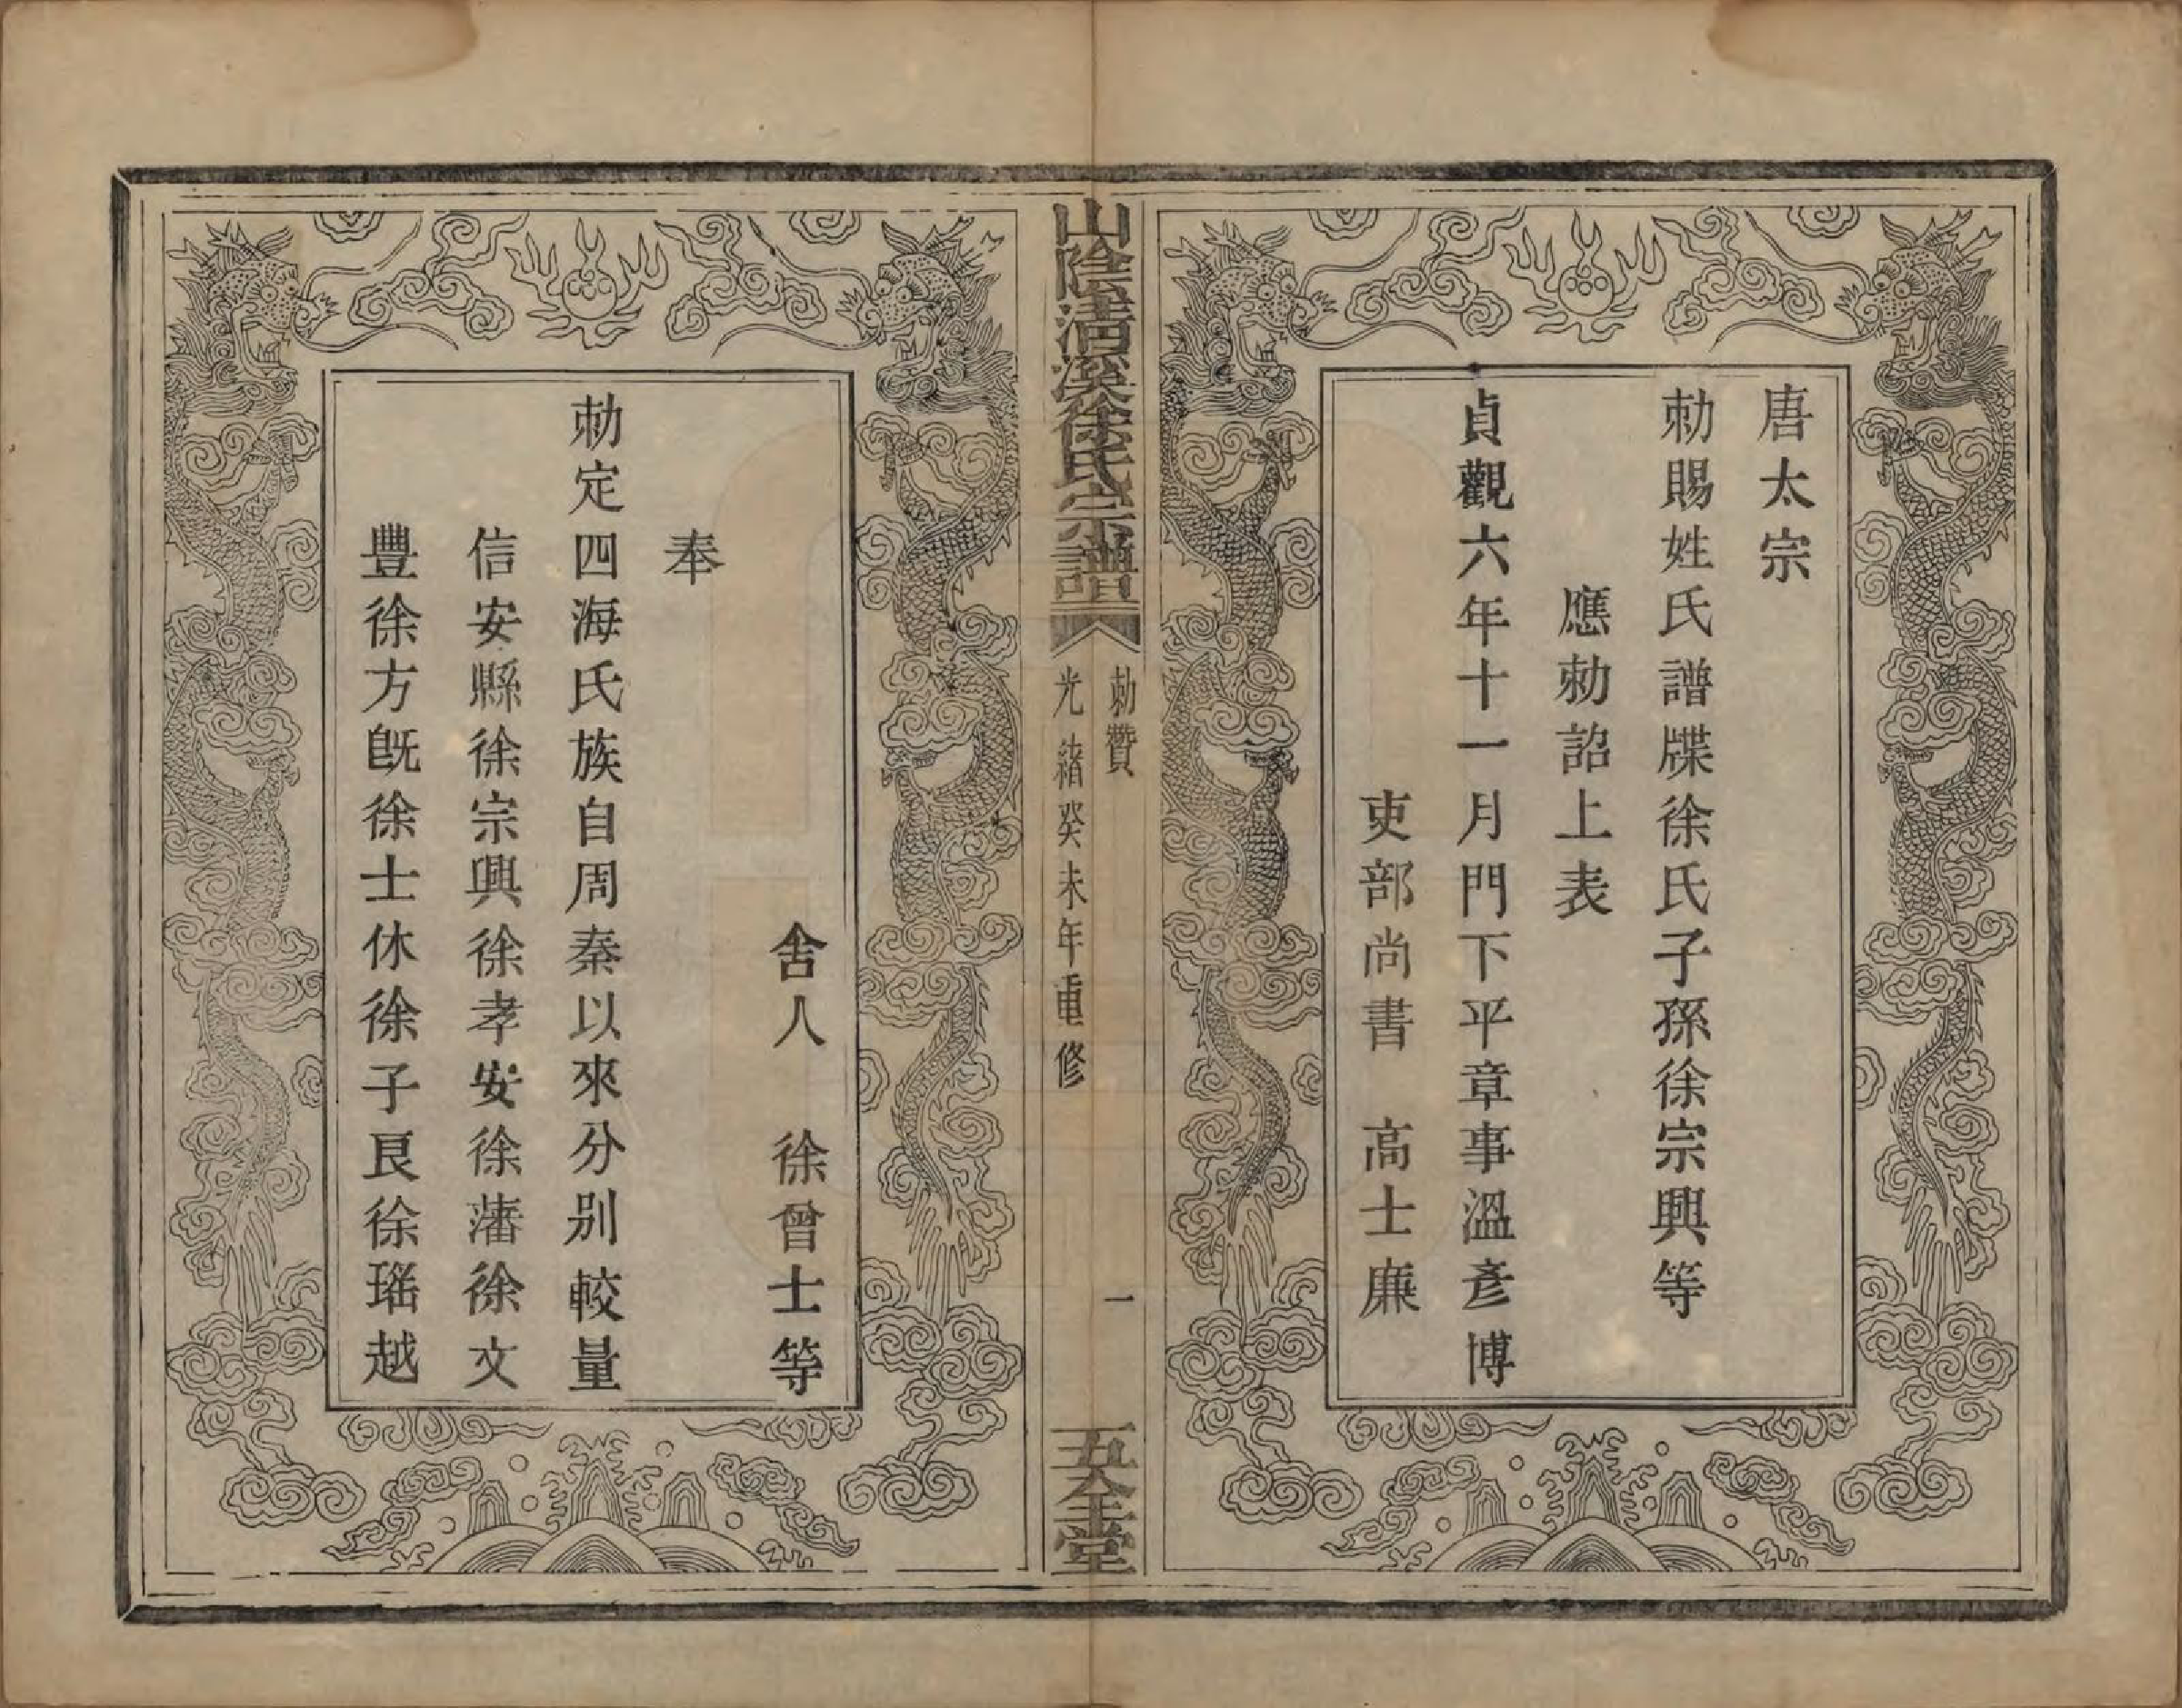 唐太宗
勅賜姓氏譜牒徐氏子孫徐宗興等
應勅詔上表
貞觀六年十一月門下平章事溫彥博
吏部尚書　高士廉
山陰清溪徐氏宗譜
勅贊
光緒癸未年重修
一
五全堂
舍人　徐曾士等
奉
勅定四海氏族自周秦以來分别較量
信安縣徐宗興徐孝安徐藩徐文
豐徐方旣徐士休徐子良徐瑤越